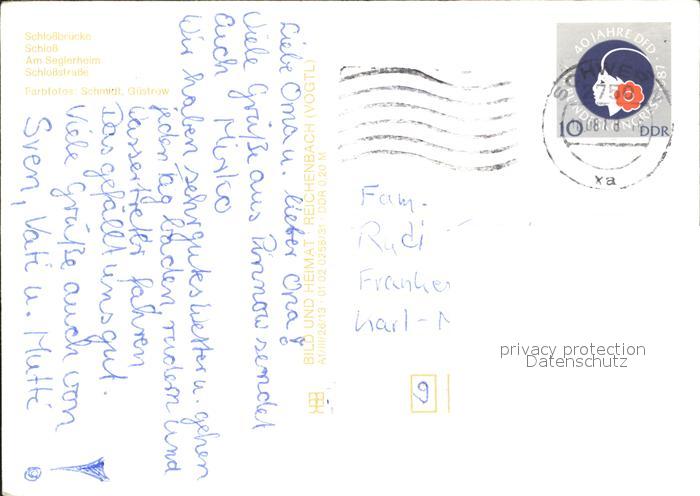 Schloßbrücke
Schloß
Am Seglerheim
Schloßstraße
Farbfotos: Schmidt, Güstrow
Liebe Oma u. lieber Opa!
Viele Grüße aus Pinnow sendet
Euch Mirko
Wir haben sehr gutes Wetter u. gehen
jeden Tag baden rudern und
Wassertreter fahren
Das gefällt uns gut.
Viele Grüße auch von
Sven, Vati u. Mutti
BILD UND HEIMAT · REICHENBACH (VOGTL)
A1/III/26/13 01 02 0258/31 DDR 0,20 M
40 JAHRE DFD
87
10
DDR
SCHWERIN
xa
Fam.
Rudi
Karl-M
9
privacy protection
Datenschutz